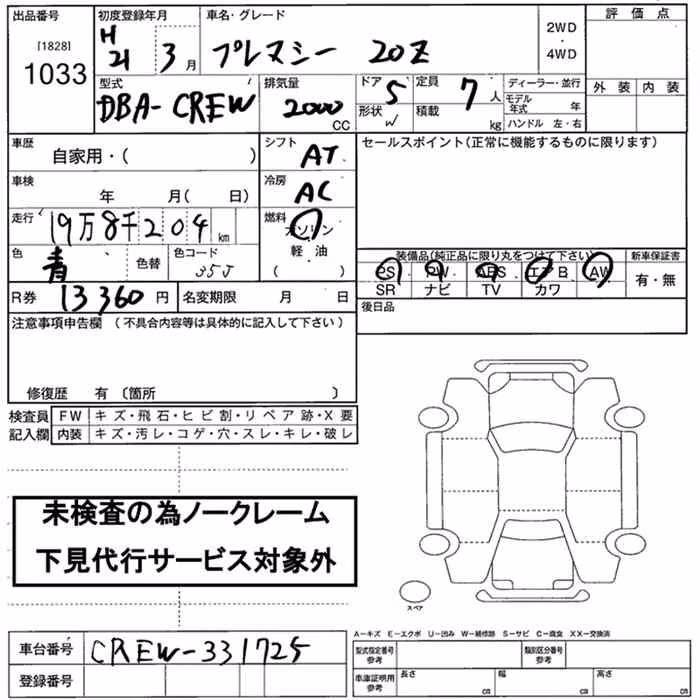 出品番号
[1828]
1033
初度登録年月
H21 3月
車名・グレード
プレマシー 20Z
2WD
・
4WD
評価点
外装 内装
型式
DBA-CREW
排気量
2000
CC
ドア 5
形状 W
定員 7人
積載 kg
ディーラー・並行
モデル年式 年
ハンドル 左・右
車歴
自家用・( )
シフト AT
セールスポイント(正常に機能するものに限ります)
車検
年 月( 日)
冷房 AC
走行 19万8千204 km
燃料
ガソリン
軽・油
( )
色 青 色替
色コード 35J
装備品(純正品に限り丸をつけて下さい)
新車保証書
PS PW ABS エアB AW
SR ナビ TV カワ
有・無
R券 13360円
名変期限 月 日
後日品
注意事項申告欄 (不具合内容等は具体的に記入して下さい)
修復歴 有 〔箇所 〕
検査員 FW キズ・飛石・ヒビ割・リペア跡・X要
記入欄 内装 キズ・汚レ・コゲ・穴・スレ・キレ・破レ
未検査の為ノークレーム
下見代行サービス対象外
スペア
A-キズ E-エクボ U-凹み W-補修跡 S-サビ C-腐食 XX-交換済
車台番号 CREW-331725
登録番号
型式指定番号 参考
類別区分番号 参考
車庫証明用 参考
長さ cm
幅 cm
高さ cm